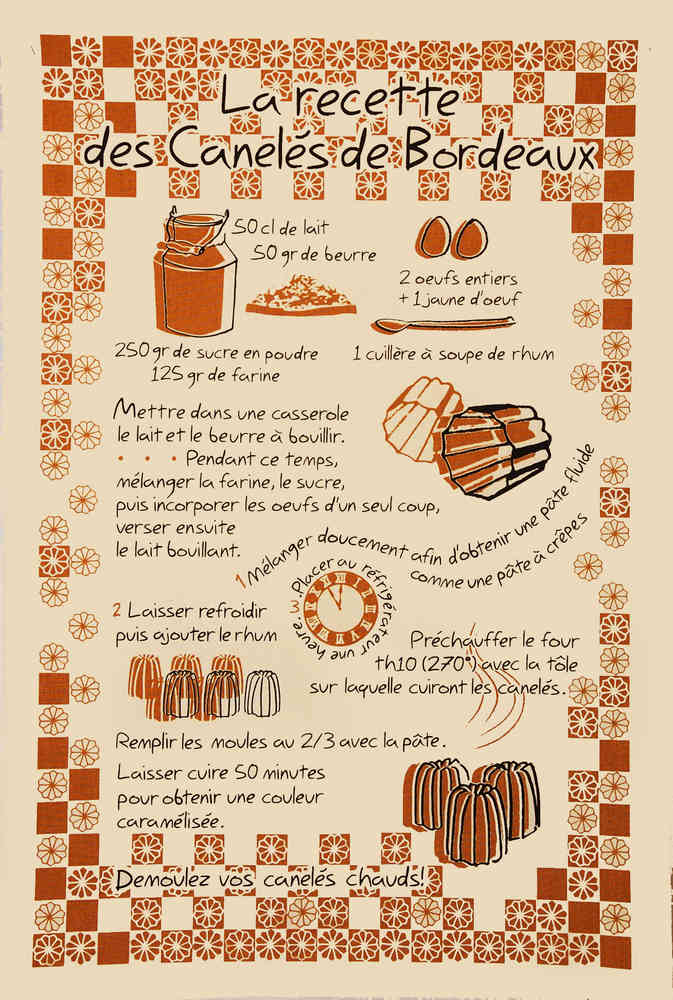 La recette
des Canelés de Bordeaux
50 cl de lait
50 gr de beurre
2 oeufs entiers
+ 1 jaune d'oeuf
250 gr de sucre en poudre
125 gr de farine
1 cuillère à soupe de rhum
Mettre dans une casserole
le lait et le beurre à bouillir.
• • • Pendant ce temps,
mélanger la farine, le sucre,
puis incorporer les oeufs d'un seul coup,
verser ensuite
le lait bouillant.
1 Mélanger doucement afin d'obtenir une pâte fluide
comme une pâte à crêpes
2 Laisser refroidir
puis ajouter le rhum
3 Placer au réfrigérateur une heure.
XII I II III IV V VI VII VIII IX X XI
Préchauffer le four
th10 (270°) avec la tôle
sur laquelle cuiront les canelés.
Remplir les moules au 2/3 avec la pâte.
Laisser cuire 50 minutes
pour obtenir une couleur
caramélisée.
Demoulez vos canelés chauds!